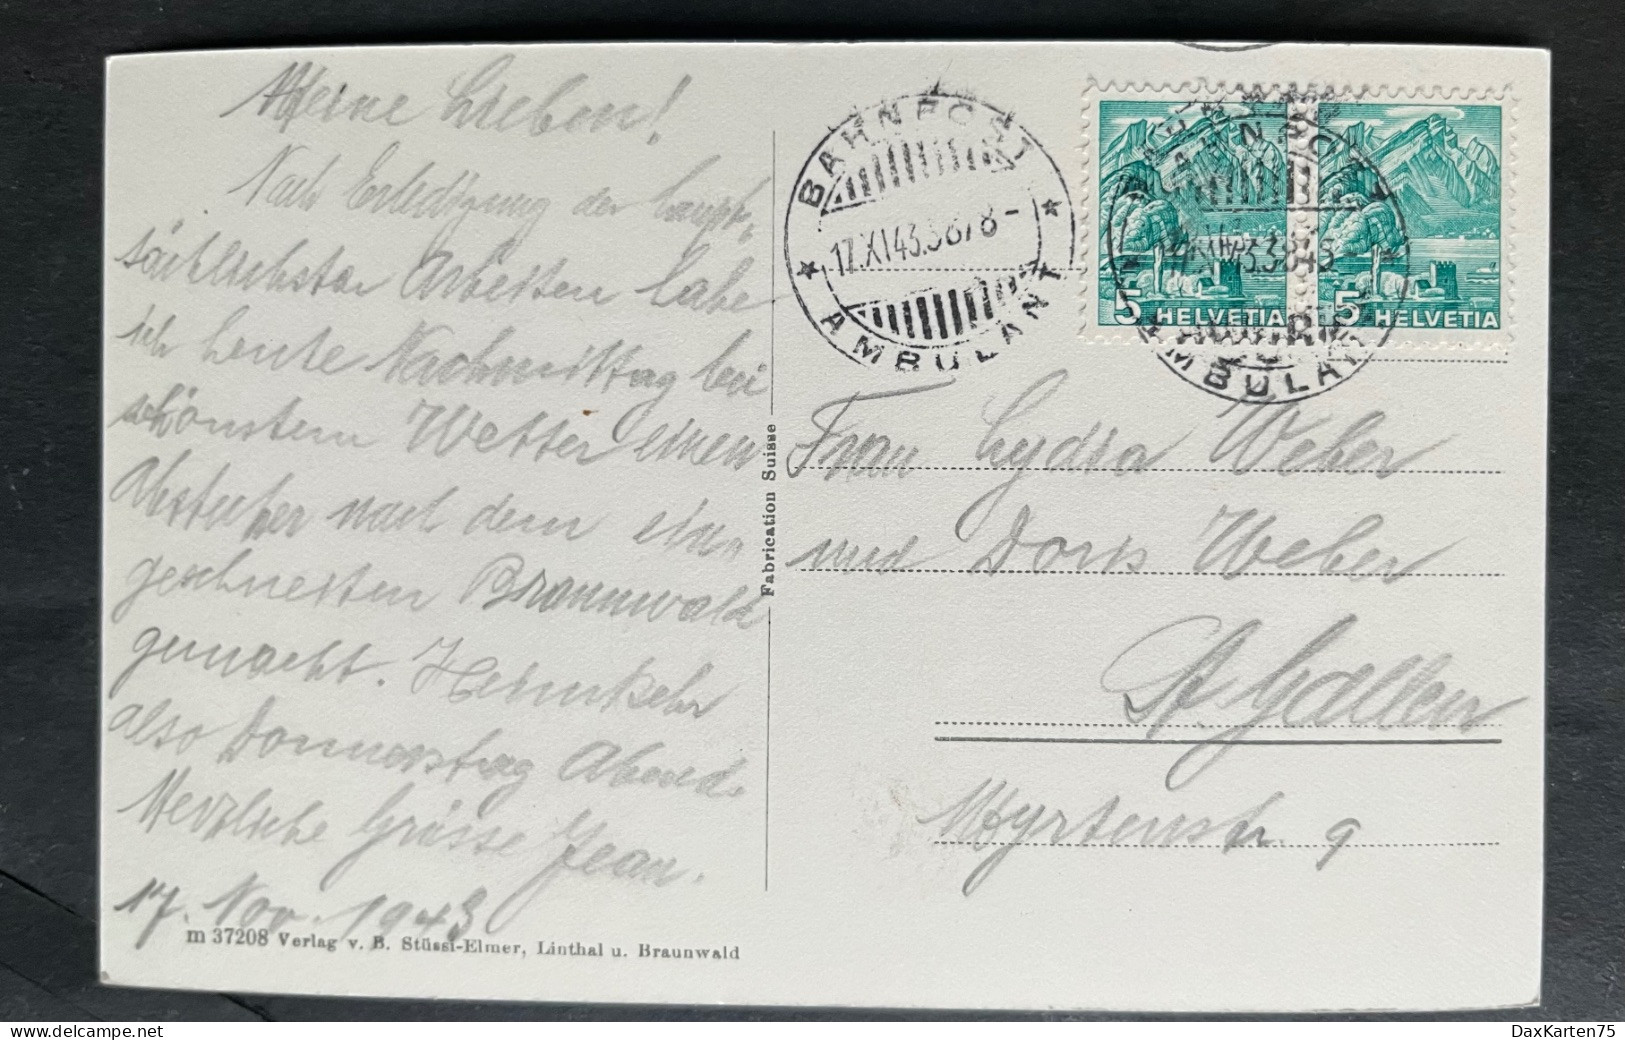 Meine Lieben!
Nach Erledigung der haupt,
sächlichsten Arbeiten habe
ich heute Nachmittag bei
schönstem Wetter einen
Abstecher nach dem ein,
geschneiten Braunwald
gemacht. Heimkehr
also Donnerstag Abend.
Herzliche Grüsse Jean.
17. Nov. 1943
m 37208 Verlag v. B. Stüssi-Elmer, Linthal u. Braunwald
Fabrication Suisse
BAHNPOST
17.XI43.3878-
AMBULANT
5 HELVETIA
5 HELVETIA
AMBULANT
Frau Lydia Weber
und Doris Weber
St. Gallen
Myrtenstr. 9
DaxKarten75